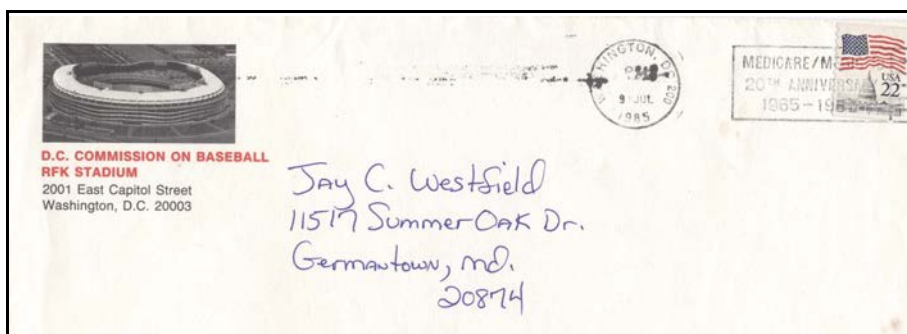 D.C. COMMISSION ON BASEBALL
RFK STADIUM
2001 East Capitol Street
Washington, D.C. 20003
WASHINGTON, DC 200
PM
9 JUL
1985
MEDICARE/M
20TH ANNIVERSA
1965-198
USA
22
Jay C. Westfield
11517 Summer Oak Dr.
Germantown, Md.
20874